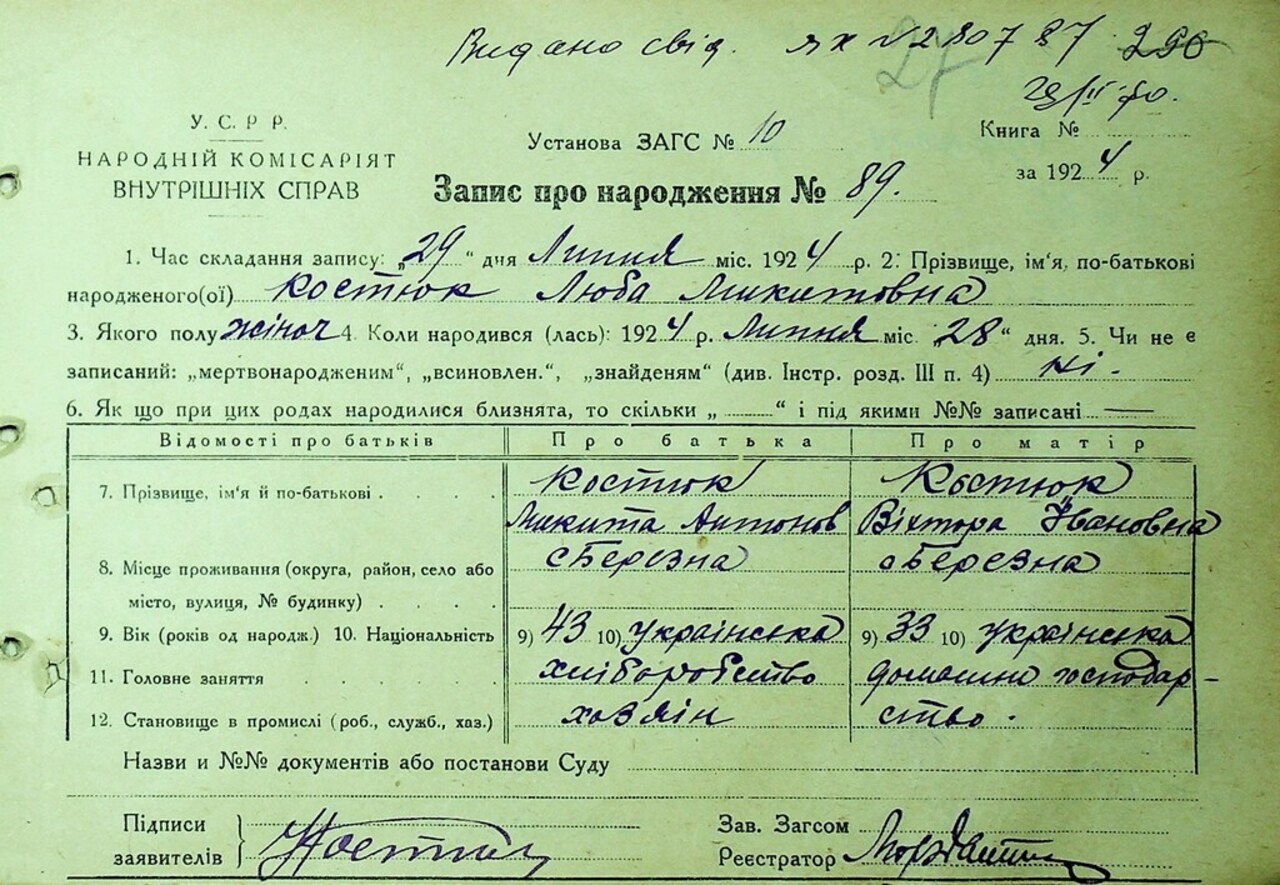 Видано свід. ЯХ № 280787
29/II-70.
У. С. Р. Р.
НАРОДНІЙ КОМІСАРІЯТ
ВНУТРІШНІХ СПРАВ
Установа ЗАГС № 10
Книга №
за 1924 р.
Запис про народження № 89.
1. Час складання запису: „29“ дня Липня міс. 1924 р. 2. Прізвище, ім'я, по-батькові
народженого(ої) Костюк Люба Микитовна
3. Якого полу жіноч 4. Коли народився (лась): 1924 р. Липня міс. „28“ дня. 5. Чи не є
записаний: „мертвонародженим“, „всиновлен.“, „знайденям“ (див. Інстр. розд. III п. 4) ні.
6. Як що при цих родах народилися близнята, то скільки „ “ і під якими №№ записані —
Відомості про батьків Про батька Про матір
7. Прізвище, ім'я й по-батькові Костюк Костюк
Микита Антонов Віхтора Івановна
8. Місце проживання (округа, район, село або с Березна с Березна
місто, вулиця, № будинку)
9. Вік (років од народж.) 10. Національність 9) 43 10) українська 9) 33 10) українська
11. Головне заняття хліборобство домашнє господар-
12. Становище в промислі (роб., служб., хаз.) хазяін ство.
Назви и №№ документів або постанови Суду
Підписи
заявителів Костюк
Зав. Загсом
Реєстратор